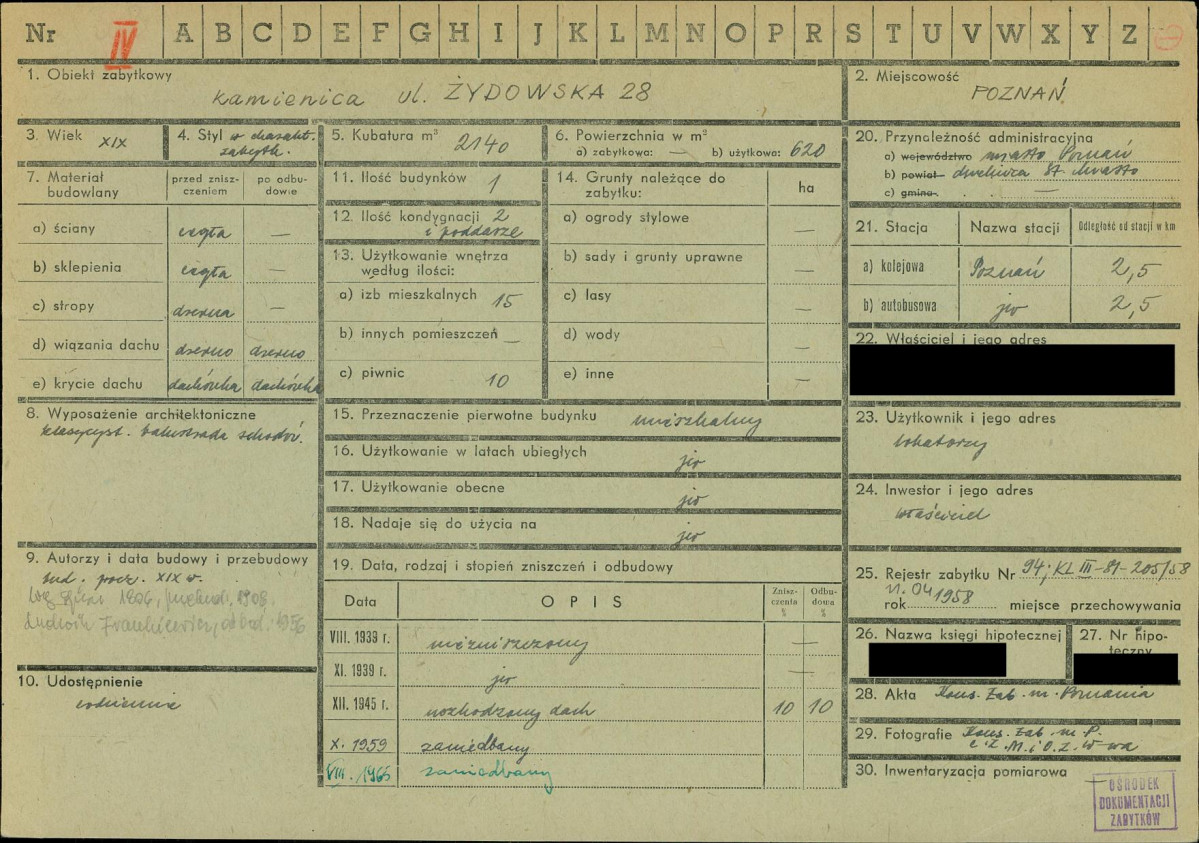 Nr IV A B C D E F G H I J K L M N O P R S T U V W X Y Z
1. Obiekt zabytkowy
kamienica ul. ŻYDOWSKA 28
2. Miejscowość
POZNAŃ
3. Wiek XIX
4. Styl w charakt.
zabytk.
5. Kubatura m³ 2140
6. Powierzchnia w m²
a) zabytkowa: — b) użytkowa: 620
7. Materiał budowlany
przed zniszczeniem
po odbudowie
a) ściany cegła —
b) sklepienia cegła —
c) stropy drewna —
d) wiązania dachu drewno drewno
e) krycie dachu dachówka dachówka
8. Wyposażenie architektoniczne
klasycyst. balustrada schodów.
9. Autorzy i data budowy i przebudowy
bud. pocz. XIX w.
1906, 1908
Frankiewicz, 1956
10. Udostępnienie
codziennie
11. Ilość budynków 1
12. Ilość kondygnacji 2
i poddasze
13. Użytkowanie wnętrza
według ilości:
a) izb mieszkalnych 15
b) innych pomieszczeń —
c) piwnic 10
14. Grunty należące do
zabytku:
ha
a) ogrody stylowe —
b) sady i grunty uprawne —
c) lasy —
d) wody —
e) inne —
15. Przeznaczenie pierwotne budynku mieszkalny
16. Użytkowanie w latach ubiegłych jw
17. Użytkowanie obecne jw
18. Nadaje się do użycia na jw
19. Data, rodzaj i stopień zniszczeń i odbudowy
Data OPIS Zniszczenia % Odbudowa %
VIII. 1939 r. niezniszczony —
XI. 1939 r. jw —
XII. 1945 r. uszkodzony dach 10 10
X. 1959 zaniedbany
VIII. 1965 zaniedbany
20. Przynależność administracyjna
a) województwo miasto Poznań
b) powiat dzielnica St. Miasto
c) gmina —
21. Stacja Nazwa stacji Odległość od stacji w km
a) kolejowa Poznań 2,5
b) autobusowa jw 2,5
22. Właściciel i jego adres
23. Użytkownik i jego adres
lokatorzy
24. Inwestor i jego adres
właściciel
25. Rejestr zabytku Nr 94; KL III-81-205/58
11.04
rok 1958 miejsce przechowywania
26. Nazwa księgi hipotecznej
27. Nr hipoteczny
28. Akta Kons. Zab. m. Poznania
29. Fotografie Kons. Zab. m P.
i Z. M. i O. Z. W-wa
30. Inwentaryzacja pomiarowa —
OŚRODEK
DOKUMENTACJI
ZABYTKÓW